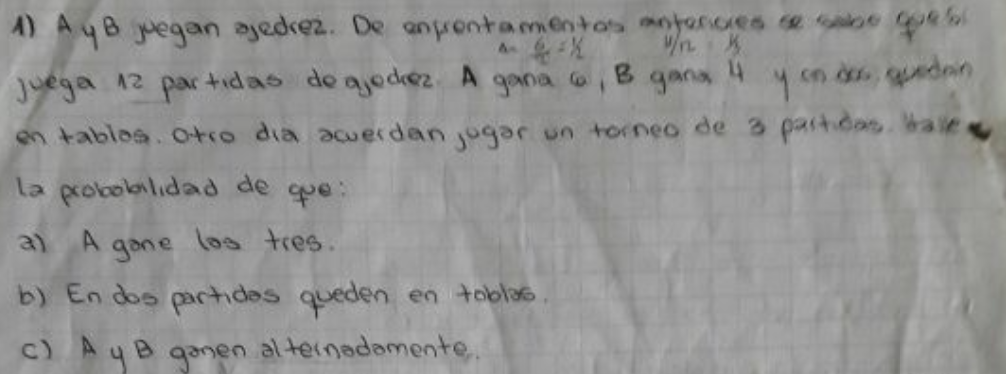 1) A y B juegan ajedrez. De enfrentamientos anteriores se sabe que si
A= 6/12 = 1/2 4/12 = 1/3
juega 12 partidas de ajedrez. A gana 6, B gana 4 y en dos quedan
en tablas. Otro dia acuerdan jugar un torneo de 3 partidas. Halle
la probabilidad de que:
a) A gane los tres.
b) En dos partidas queden en tablas.
c) A y B ganen alternadamente.